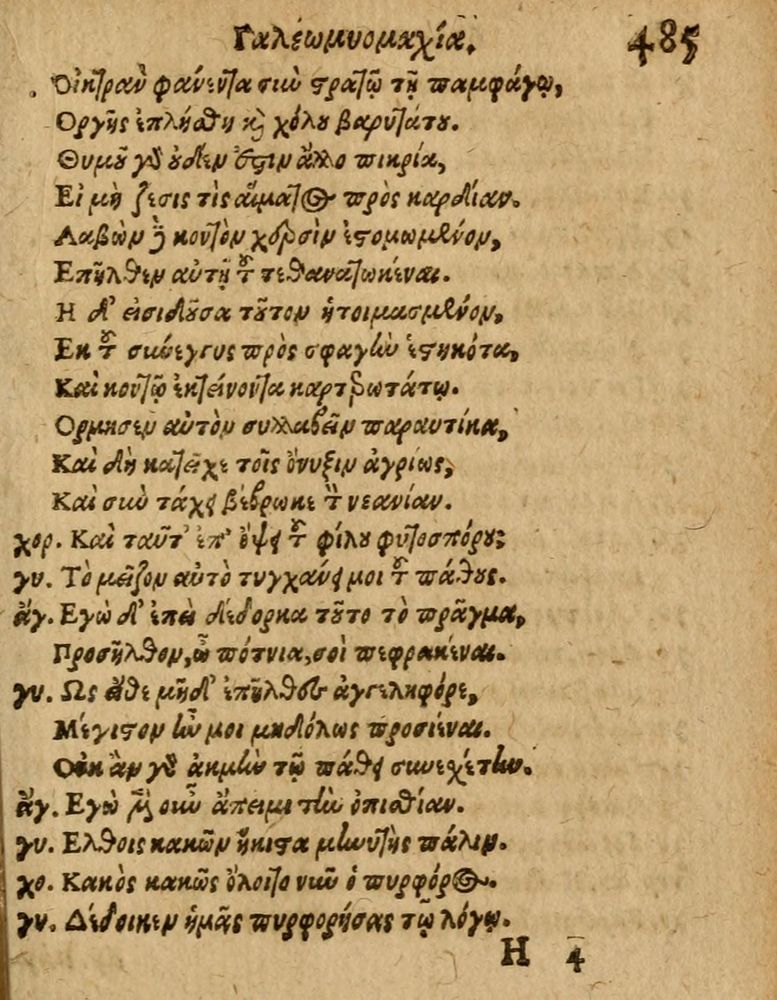 Γαλέωμυομαχία. 485
Οἰκτρὰν φανέντα σὺν στρατῷ τῇ παμφάγῳ,
Οργῆς ἐπλήσθη καὶ χόλου βαρυτάτου.
Θυμοῦ γὰρ οὐδέν ἐστιν ἄλλο πικρία,
Εἰ μὴ ζέσις τὶς αἵματος πρὸς καρδίαν.
Λαβὼν δὲ κοντὸν χερσὶν ἐστομωμένον,
Επῆλθεν αὐτῇ τοῦ τεθανατωκέναι.
Η δ' εἰσιδοῦσα τοῦτον ἡτοιμασμένον,
Εκ τοῦ σκόεγγυς πρὸς σφαγὴν ἑστηκότα,
Καὶ κοντῷ ἐκτείνοντα καρτερωτάτῳ.
Ορμησεν αὐτὸν συλλαβεῖν παραυτίκα,
Καὶ δὴ κατεῖχε τοῖς ὄνυξιν ἀγρίως,
Καὶ σὺν τάχει βέβρωκε τὸν νεανίαν.
χορ. Καὶ ταῦτ' ἐπ' ὄψει τοῦ φίλου φυτοσπόρου;
γυ. Τὸ μεῖζον αὐτὸ τυγχάνει μοι τοῦ πάθους.
ἄγ. Εγὼ δ' ἐπεὶ δέδορκα τοῦτο τὸ πρᾶγμα,
Προσῆλθον, ὦ πότνια, σοὶ πεφρακέναι.
γυ. Ως εἴθε μηδ' ἐπῆλθες ἀγγεληφόρε,
Μέγιστον ἦν μοι μηδόλως προσιέναι.
Οὐκ ἂν γὰρ ἀκμὴν τῷ πάθει συνειχέτην.
ἄγ. Εγὼ μὲν οὖν ἄπειμι τὴν ὀπισθίαν.
γυ. Ελθοις κακῶν ἥκιστα μηνυτὴς πάλιν.
χο. Κακὸς κακῶς ὄλοιτο νῦν ὁ πυρφόρος.
γυ. Δέδοικεν ἡμᾶς πυρφορήσας τῷ λόγῳ.
Η 4